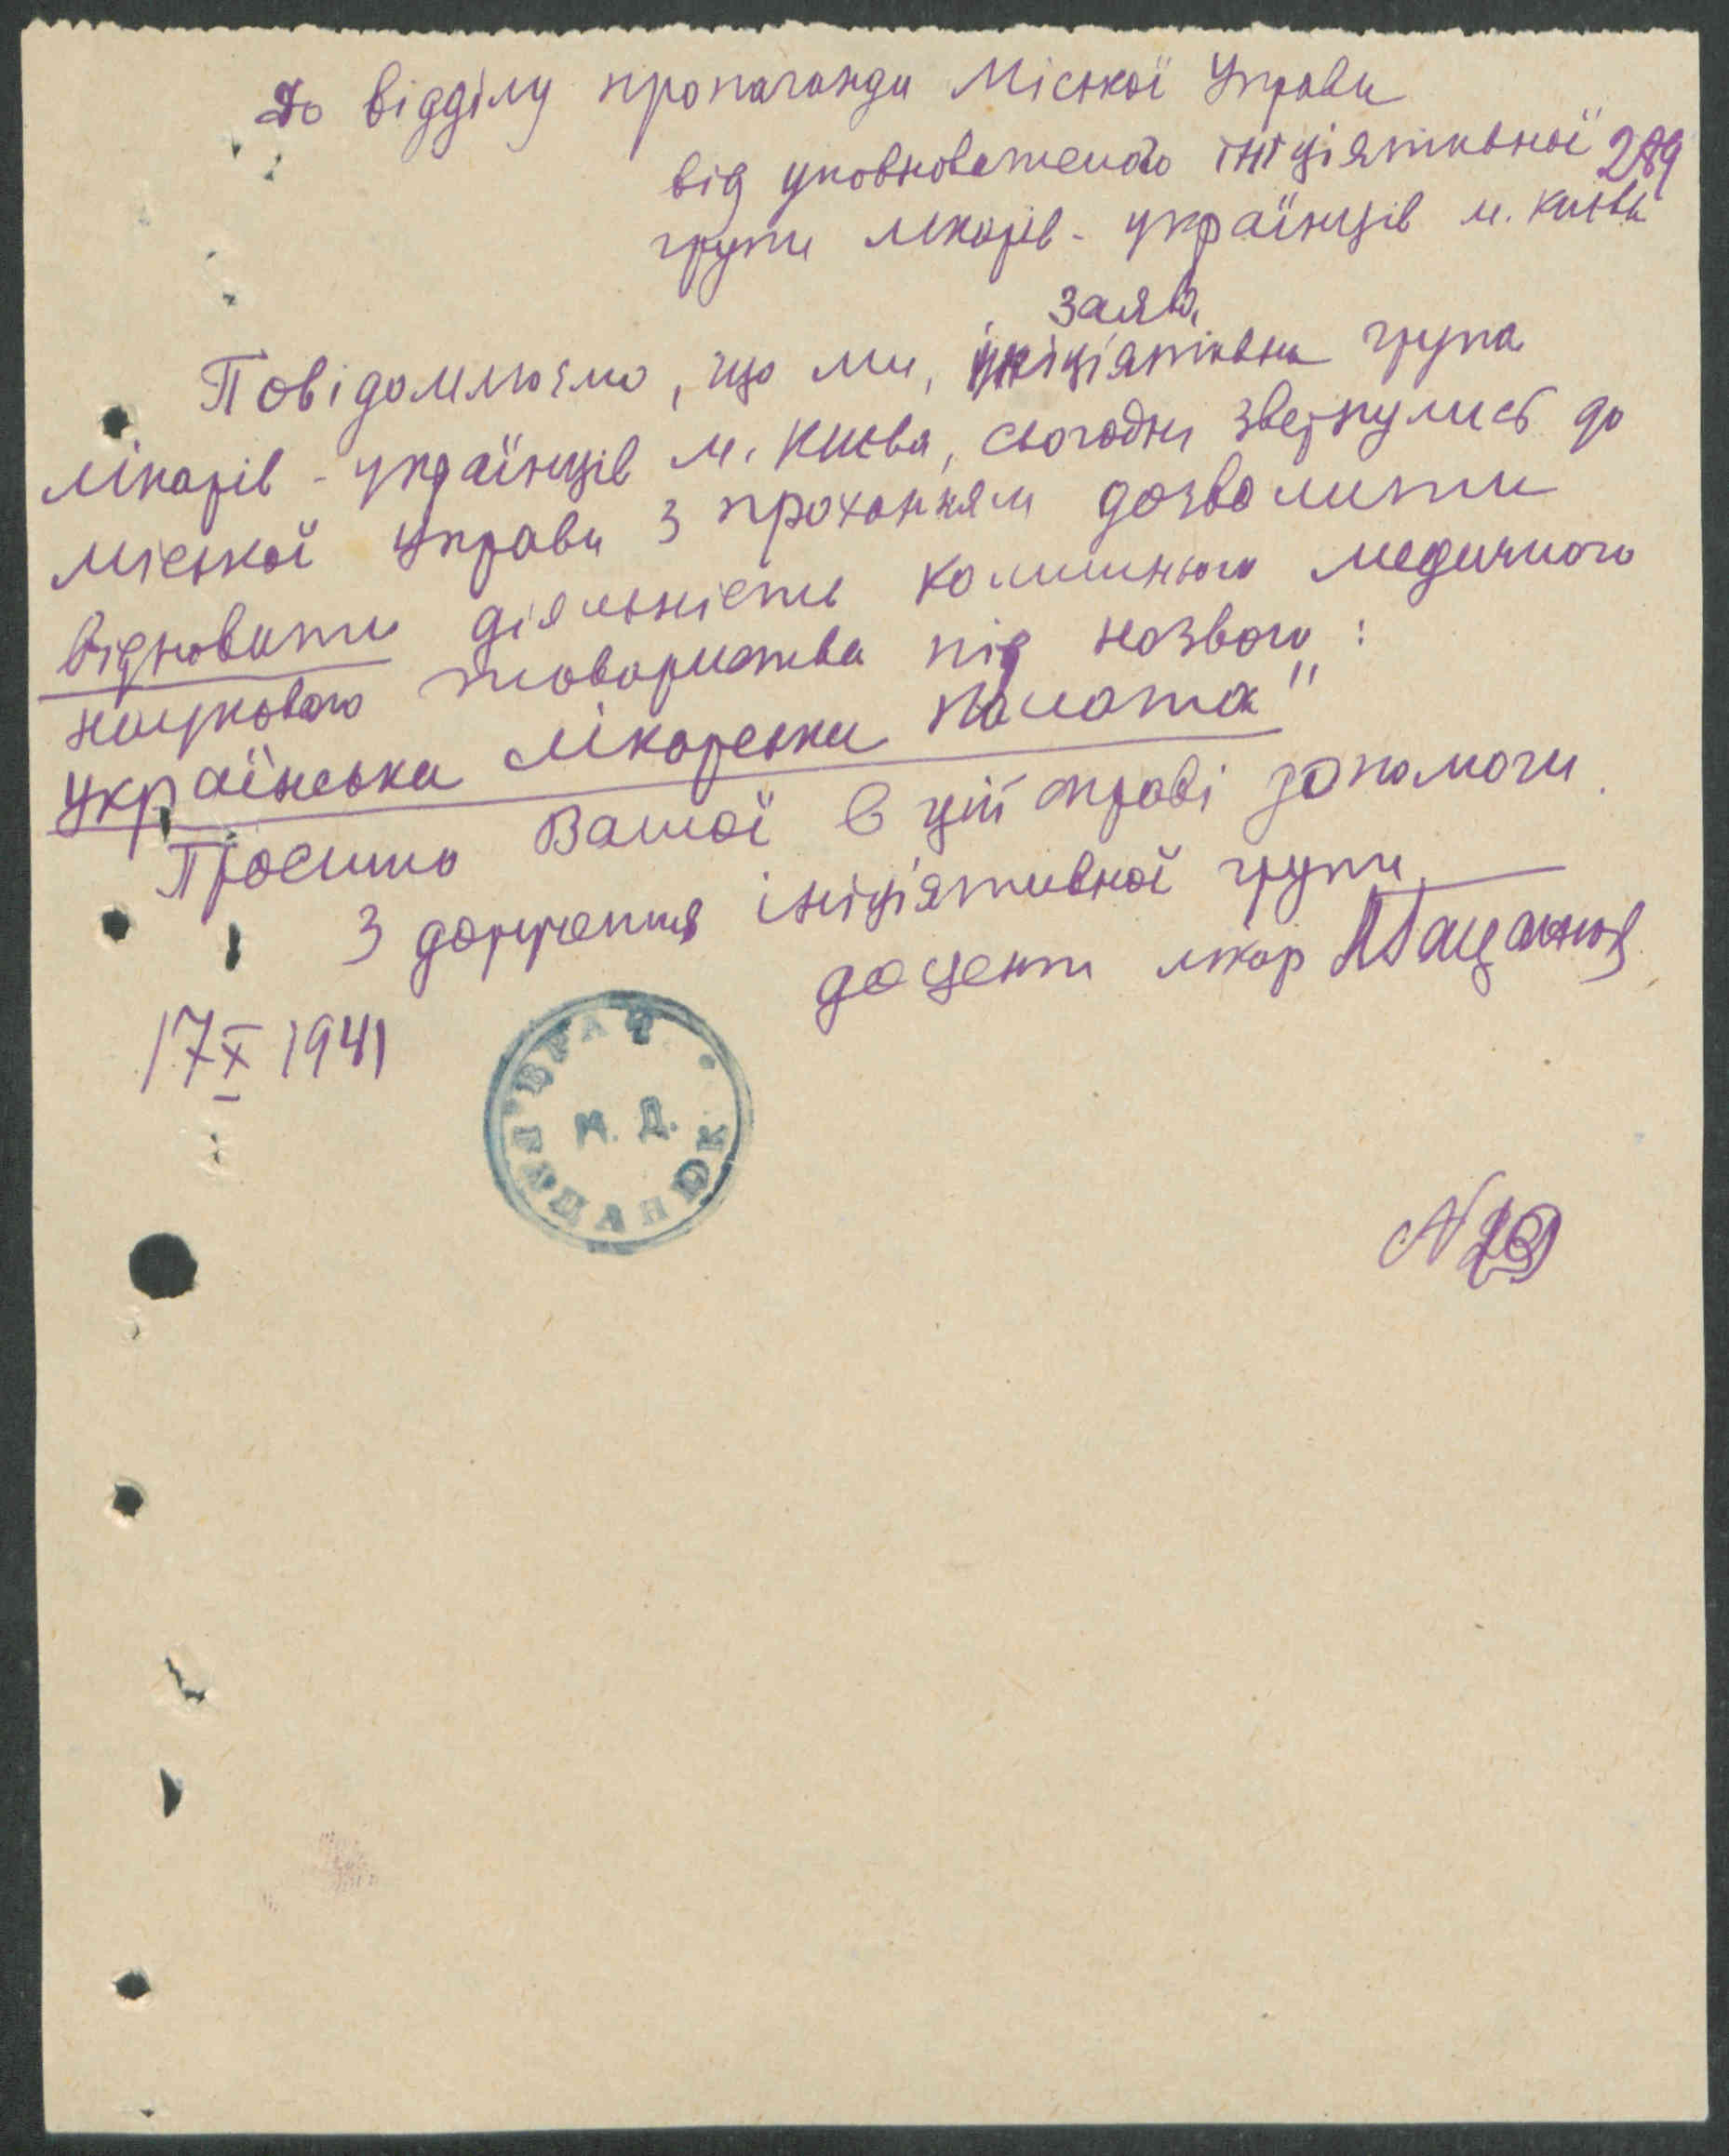 До відділу пропаганди Міської Управи
від уповноваженого ініціятивної 289
групи лікарів - українців м. Києва
Заява
Повідомлюємо, що ми, ініціятивна група
лікарів - українців м. Києва, сьогодні звернулись до
Міської Управи з проханням дозволити
відновити діяльність колишнього медичного
наукового товариства під назвою:
Українська лікарська палата"
Просимо Вашої в цій справі допомоги.
З доручення ініціятивної групи
доцент лікар
17 X 1941
ВРАЧ
М. Д.
ПАЦАНЮК
N